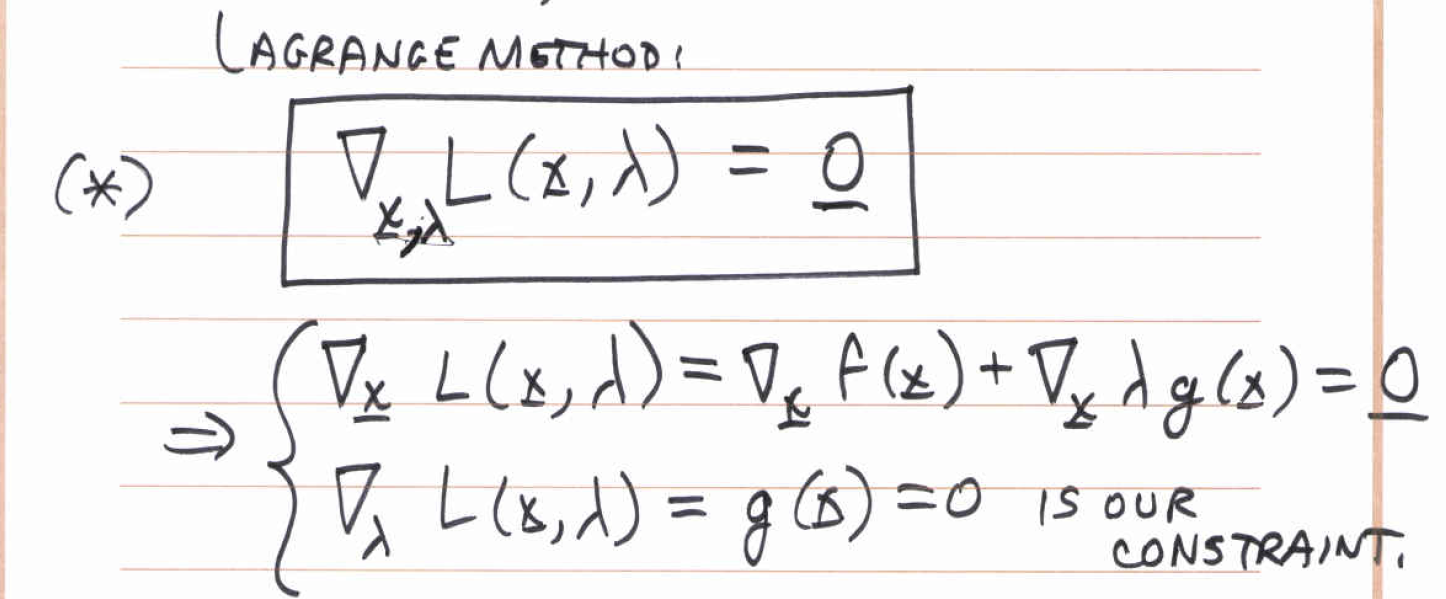 LAGRANGE METHOD:
(*) ∇_x̲,λ L(x̲, λ) = 0̲
⇒ { ∇_x̲ L(x̲, λ) = ∇_x̲ f(x̲) + ∇_x̲ λ g(x̲) = 0̲
∇_λ L(x̲, λ) = g(x̲) = 0 IS OUR
CONSTRAINT.